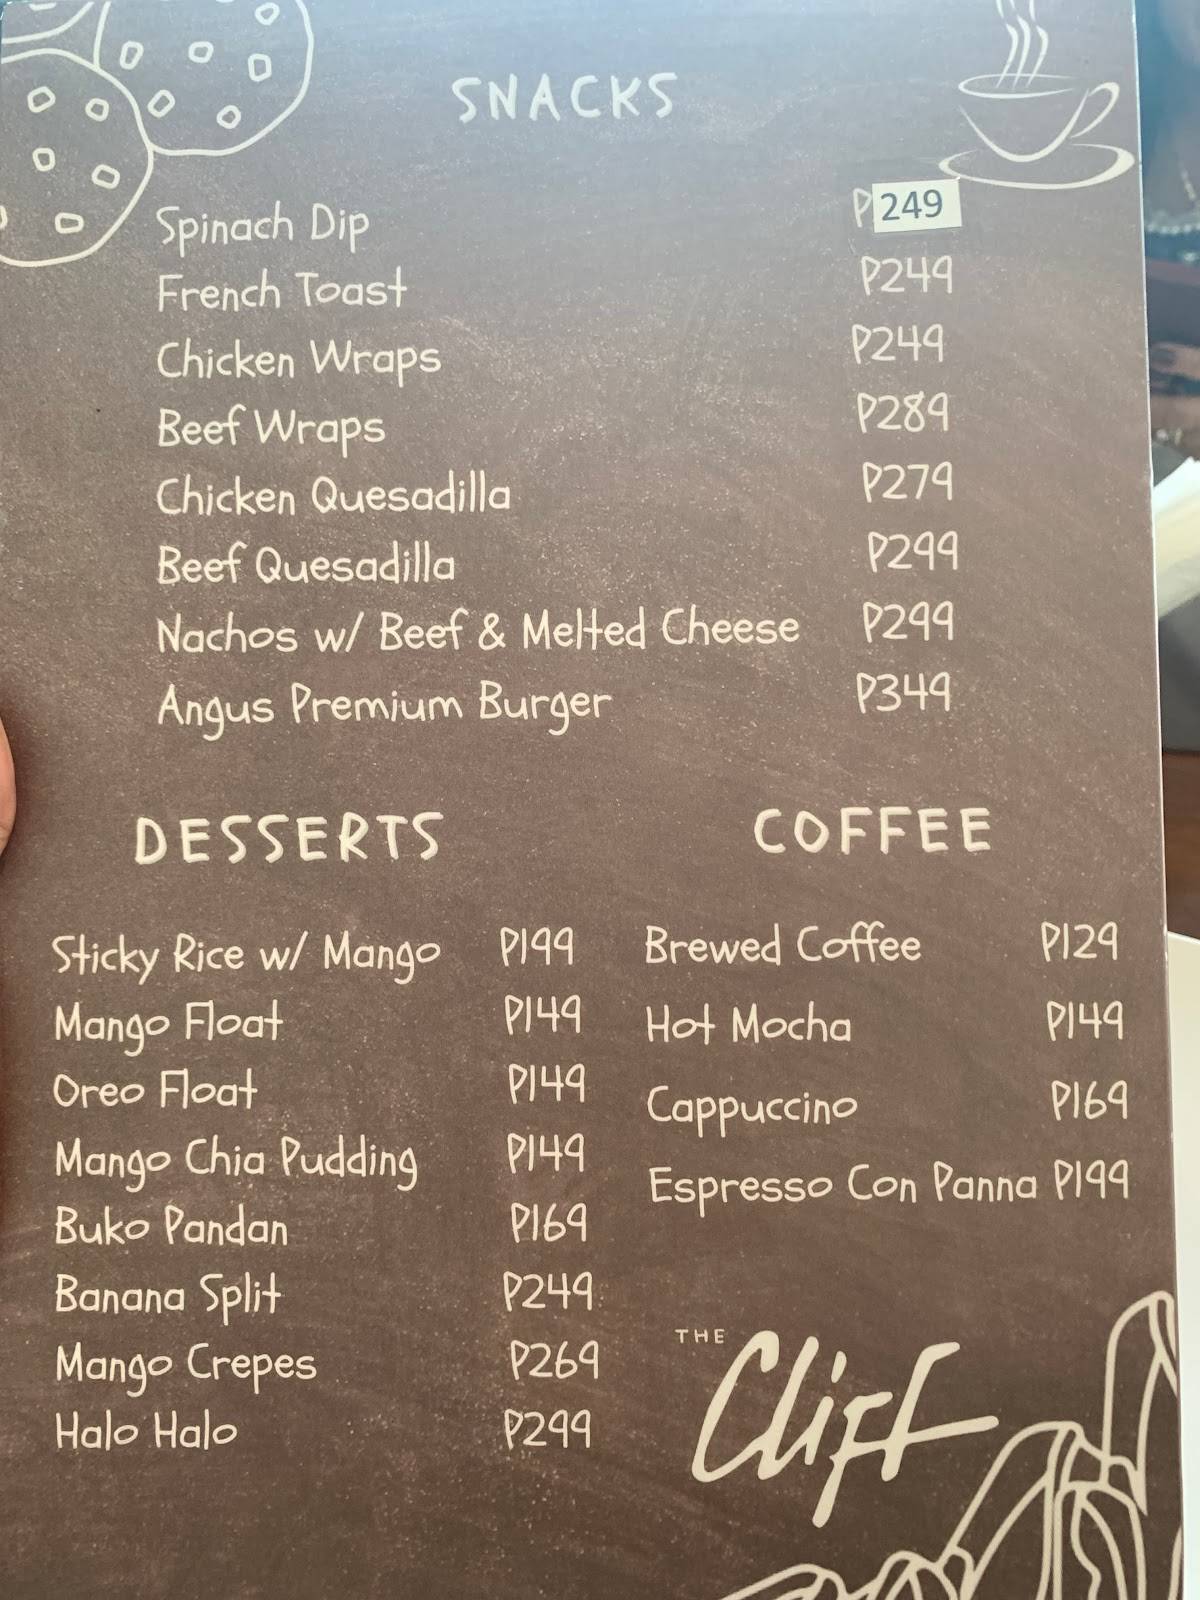 SNACKS
Spinach Dip P249
French Toast P249
Chicken Wraps P249
Beef Wraps P289
Chicken Quesadilla P279
Beef Quesadilla P299
Nachos w/ Beef & Melted Cheese P299
Angus Premium Burger P349
DESSERTS
Sticky Rice w/ Mango P199
Mango Float P149
Oreo Float P149
Mango Chia Pudding P149
Buko Pandan P169
Banana Split P249
Mango Crepes P269
Halo Halo P299
COFFEE
Brewed Coffee P129
Hot Mocha P149
Cappuccino P169
Espresso Con Panna P199
THE
Cliff